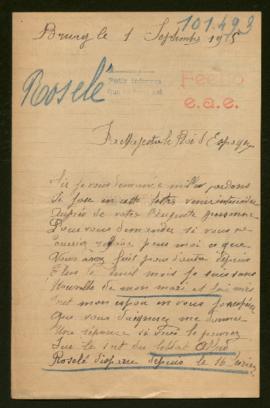 101.493
Bruay le 1 Septembre 1915
Roselé
Fecho
e.a.e.
Sa Majesté le Roi d'Espagne
Si je vous demande mille pardons
Si j'ose en cette lettre
auprès de votre Auguste personne
Pour vous demander si vous ne
pour moi ce que
Vous avez fait pour d'autre depuis
Plus de huit mois je suis sans
Nouvelle de mon mari et j'ai mis
tout mon espoir en vous
que vous daignerez me donner
Une réponse si vous le pouvez
Sur le sort du soldat
Roselé disparu depuis le 16